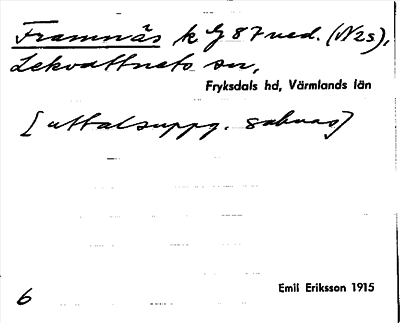 Framnäs k G 87 ned. (N2s),
Lekvattnets sn,
Fryksdals hd, Värmlands län
[uttalsuppg. saknas]
6
Emil Eriksson 1915